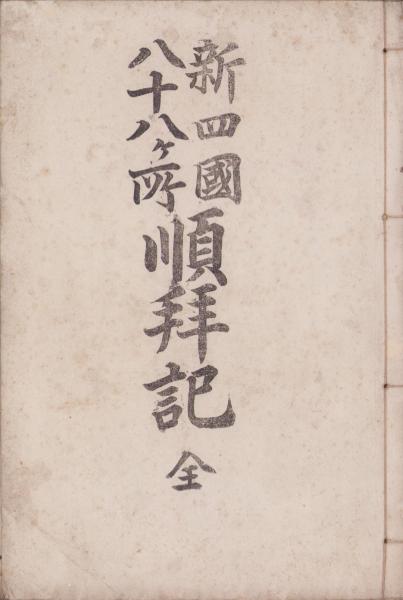 新四國
八十八ヶ所
順拜記
全